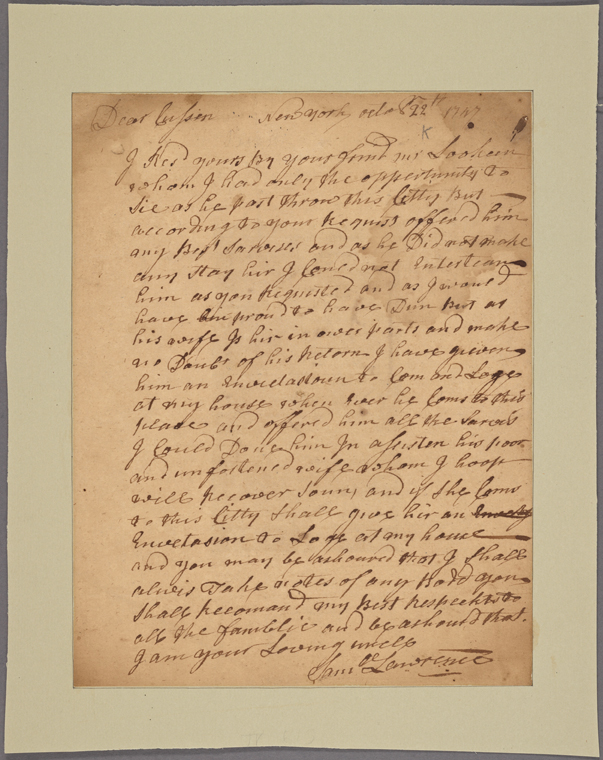 Dear Cussen New york, octobr 22th 1747
K
I Resd yours By your frind mr
whom I had only the opportunity to
See as he past throw this Citty But
according to your Request offered him
my Best Sarveses and as he Did not make
any Stay hir I Coued not Entertean
him as you Requested and as I woued
have bin proud to have Dun But as
his wife Is hir in ower parts and make
no Doubt of his Retorn I have given
him an Envetasioun to Com and Loge
at my house when ever he Coms to this
place and offered him all the Sarveis
I Could Done him In assisten his poor
and unfortened wife whom I hoop
will Recover Soun, and if She Coms
to this Citty Shall give hir an
Envetasion to Loge at my house
and you may be ashoured that I Shall
alwis Take notes of any Boddy you
Shall Recomand my Best Respekts to
all the famblie and be ashourd that
I am your Loving uncle
Samll Lawrence